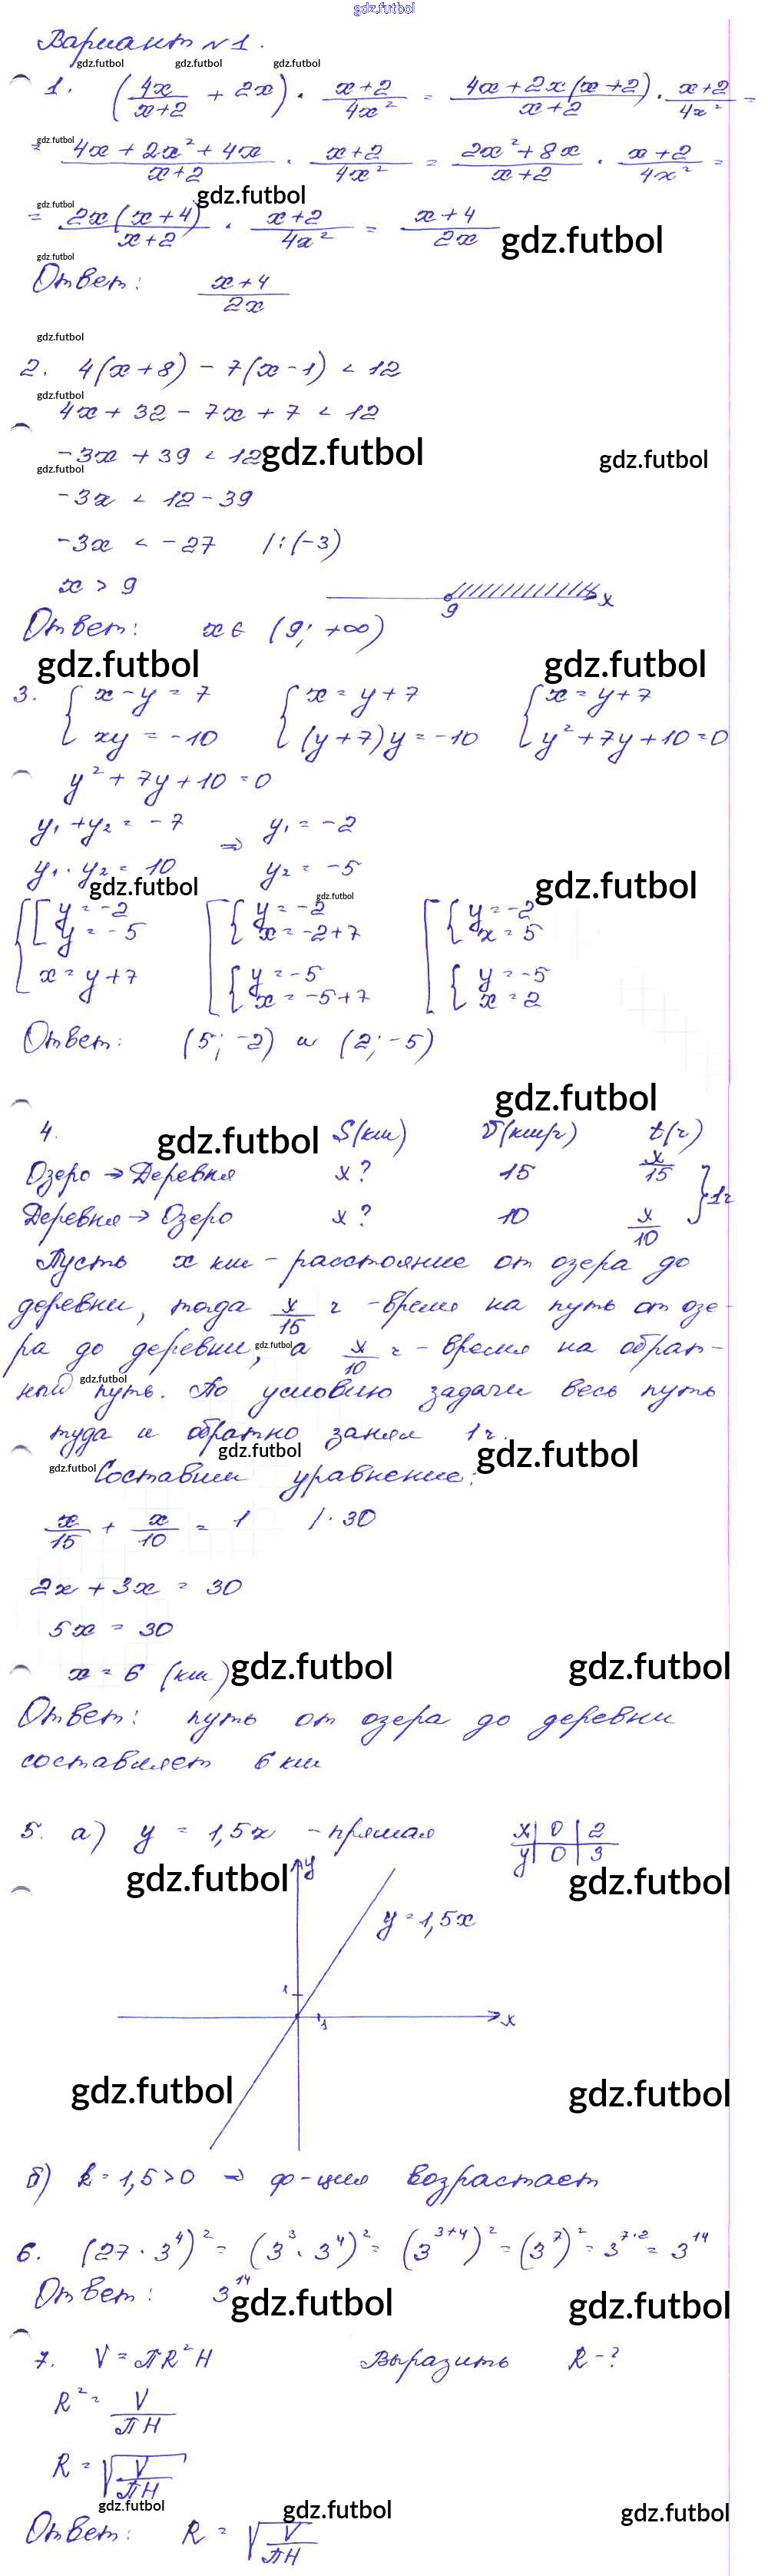 gdz.futbol
Вариант №1.
gdz.futbol gdz.futbol gdz.futbol
1. (4x/(x+2) + 2x) · (x+2)/(4x²) = (4x+2x(x+2))/(x+2) · (x+2)/(4x²) =
gdz.futbol
= (4x+2x²+4x)/(x+2) · (x+2)/(4x²) = (2x²+8x)/(x+2) · (x+2)/(4x²) =
gdz.futbol gdz.futbol
= (2x(x+4))/(x+2) · (x+2)/(4x²) = (x+4)/(2x) gdz.futbol
gdz.futbol
Ответ: (x+4)/(2x)
gdz.futbol
2. 4(x+8) - 7(x-1) < 12
gdz.futbol
4x + 32 - 7x + 7 < 12
-3x + 39 < 12 gdz.futbol gdz.futbol
gdz.futbol
-3x < 12-39
-3x < -27 |:(-3)
x > 9
9 x
Ответ: x∈ (9; +∞)
gdz.futbol gdz.futbol
3. { x-y=7 { x=y+7 { x=y+7
xy = -10 (y+7)y=-10 y²+7y+10=0
y²+7y+10=0
y₁+y₂=-7 ⇒ y₁=-2
y₁·y₂=10 y₂=-5
gdz.futbol gdz.futbol gdz.futbol
{ [ y=-2 [ { y=-2 [ { y=-2
y=-5 x=-2+7 x=5
x=y+7 { y=-5 { y=-5
x=-5+7 x=2
Ответ: (5; -2) и (2; -5)
gdz.futbol
4. gdz.futbol S(км) V(км/ч) t(ч)
Озеро → Деревня x? 15 x/15 } 1ч
Деревня → Озеро x? 10 x/10
Пусть x км - расстояние от озера до
деревни, тогда x/15 ч - время на путь от озе-
ра до деревни, gdz.futbol а x/10 ч - время на обрат-
gdz.futbol
ный путь. По условию задачи весь путь
туда и обратно занял 1ч.
gdz.futbol gdz.futbol
gdz.futbol Составим уравнение:
x/15 + x/10 = 1 |·30
2x + 3x = 30
5x = 30
x = 6 (км) gdz.futbol gdz.futbol
Ответ: путь от озера до деревни
составляет 6 км
5. а) y = 1,5x - прямая x|0|2
y|0|3
gdz.futbol y gdz.futbol
y=1,5x
1
1 x
gdz.futbol gdz.futbol
б) k=1,5>0 ⇒ ф-ция возрастает
6. (27·3⁴)² = (3³·3⁴)² = (3³⁺⁴)² = (3⁷)² = 3⁷·² = 3¹⁴
Ответ: 3¹⁴ gdz.futbol gdz.futbol
7. V=ПR²H Выразить R-?
R² = V/(ПH)
R = √(V/(ПH))
gdz.futbol gdz.futbol gdz.futbol
Ответ: R = √(V/(ПH))